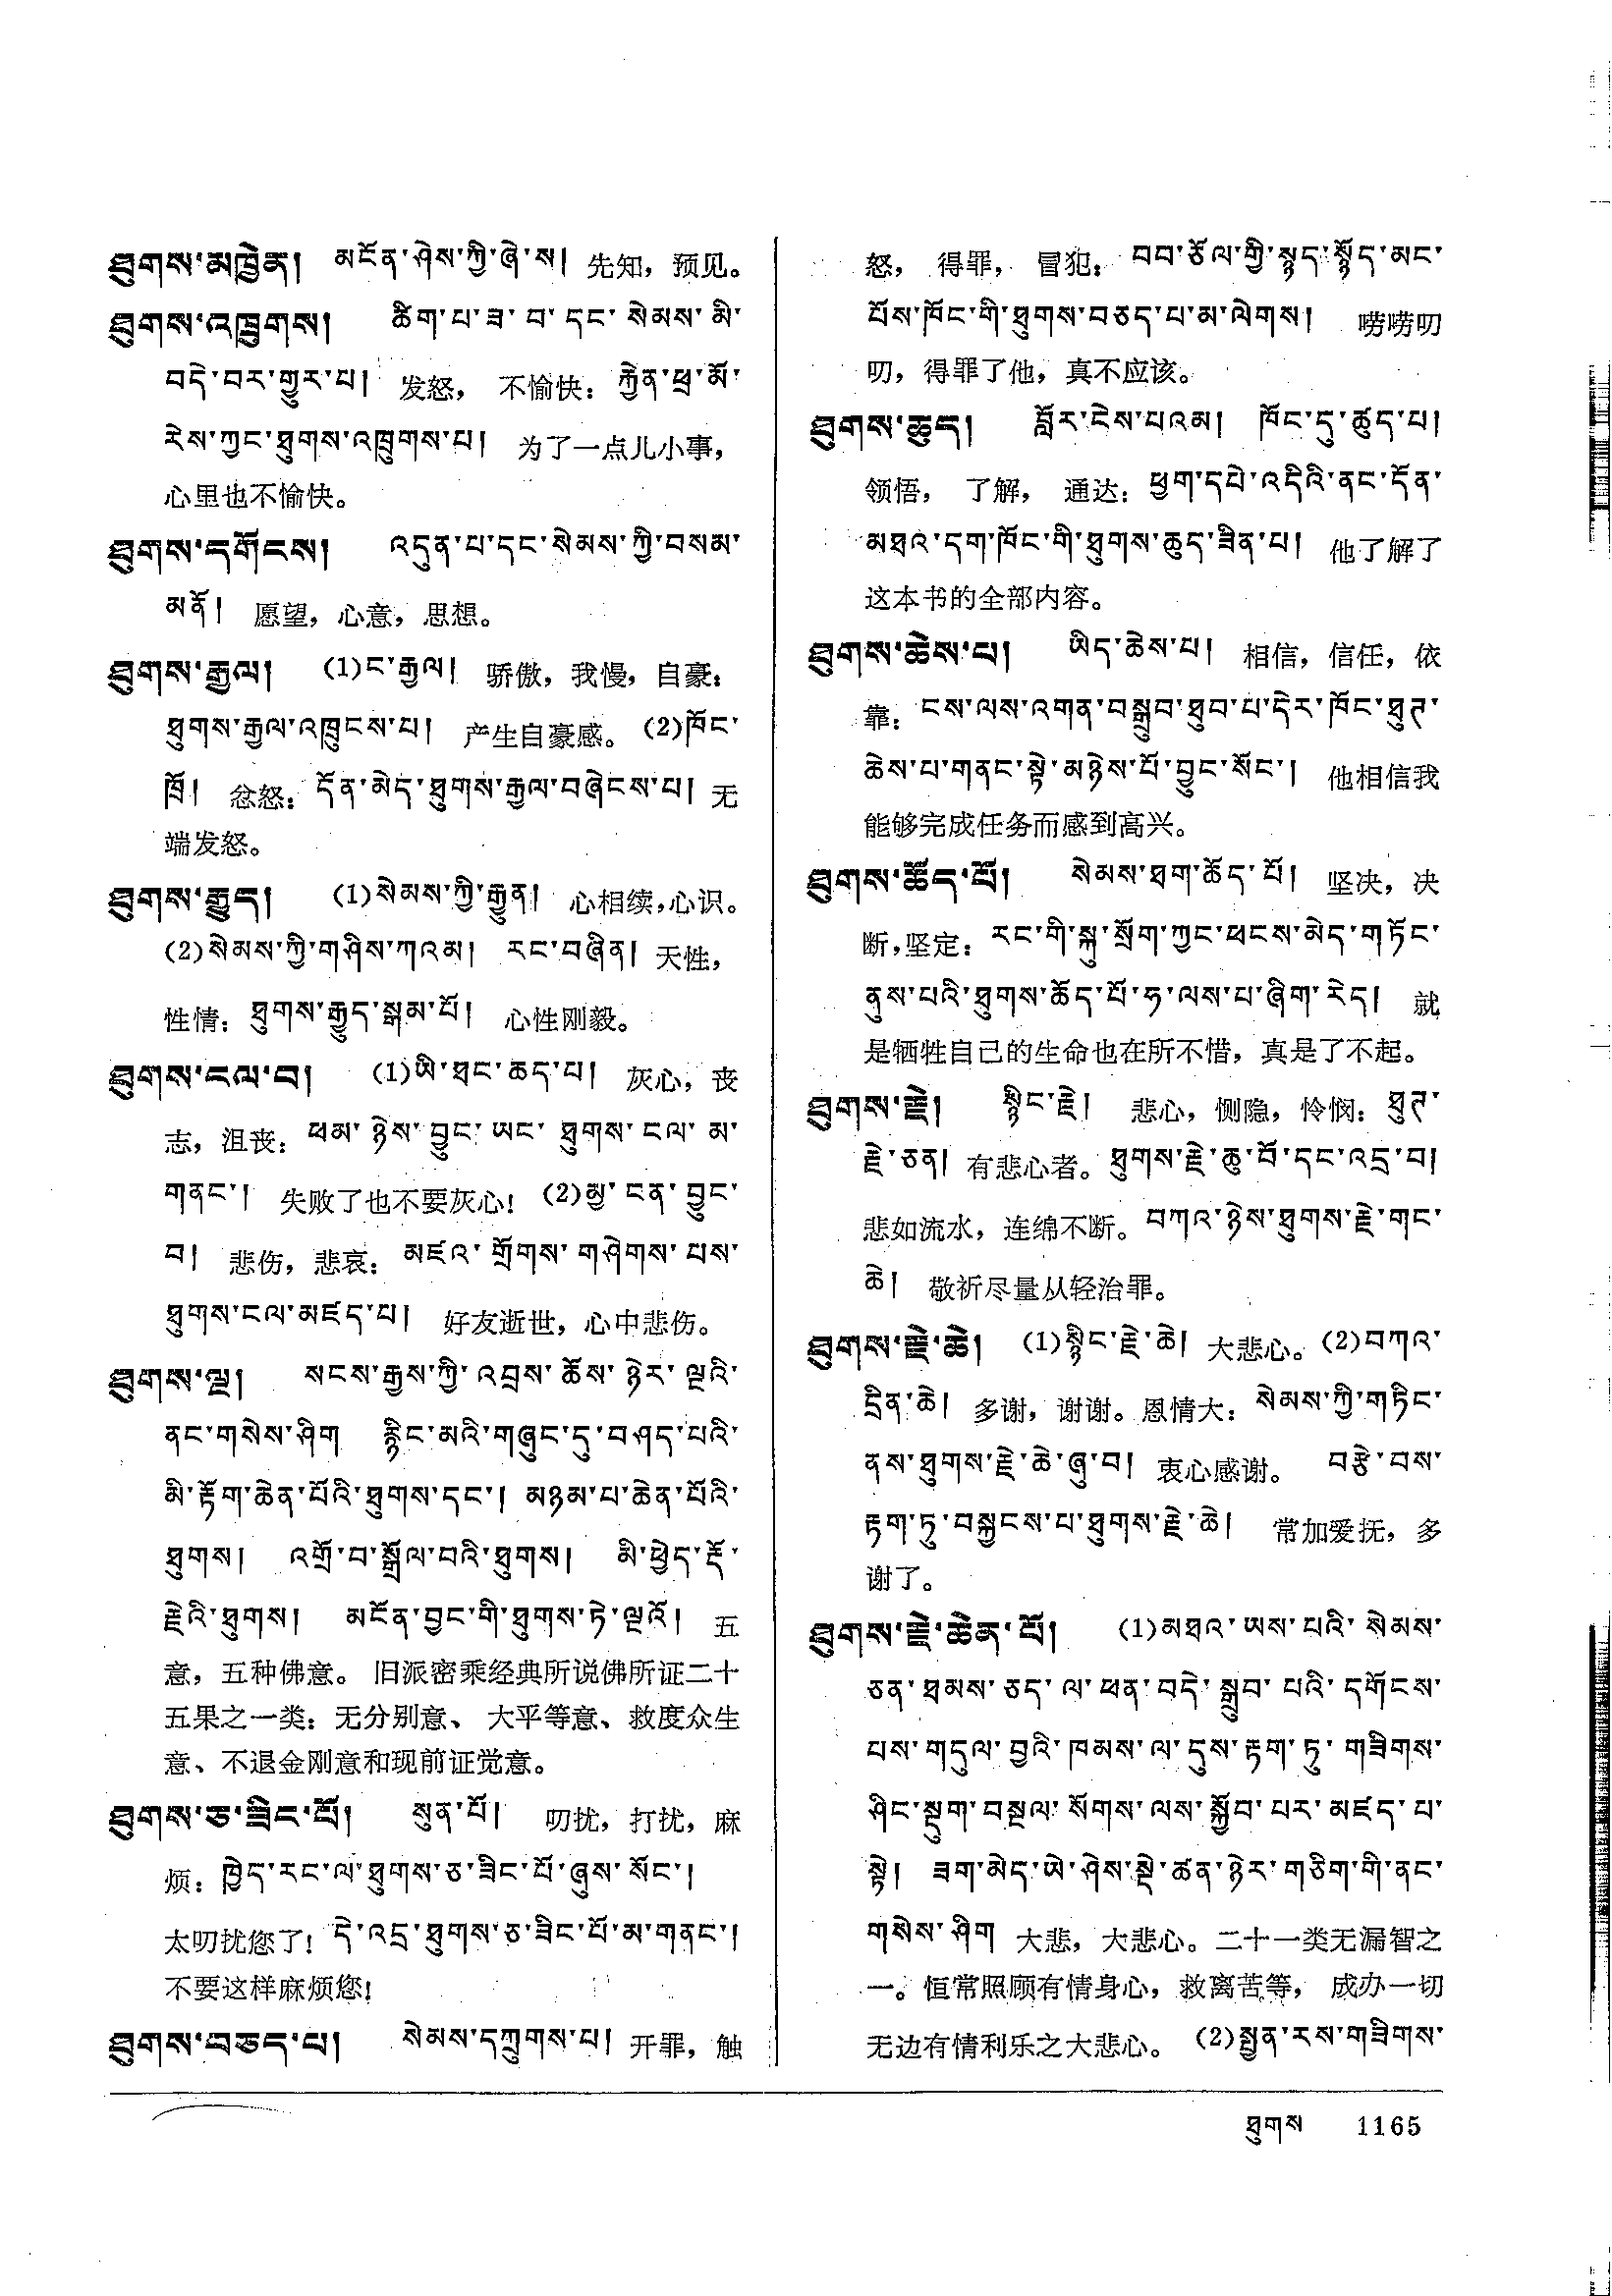 ཐུགས་མཁྱེན། མངོན་ཤེས་ཀྱི་ཞེ་ས། 先知，预见。
ཐུགས་འཁྲུགས། ཚིག་པ་ཟ་བ་དང་སེམས་མི་
བདེ་བར་གྱུར་པ། 发怒，不愉快：རྐྱེན་ཕྲ་མོ་
རེས་ཀྱང་ཐུགས་འཁྲུགས་པ། 为了一点儿小事，
心里也不愉快。
ཐུགས་དགོངས། འདུན་པ་དང་སེམས་ཀྱི་བསམ་
མནོ། 愿望，心意，思想。
ཐུགས་རྒྱལ། (1)ང་རྒྱལ། 骄傲，我慢，自豪：
ཐུགས་རྒྱལ་འཁྲུངས་པ། 产生自豪感。(2)ཁོང་
ཁྲོ། 忿怒：དོན་མེད་ཐུགས་རྒྱལ་བཞེངས་པ། 无
端发怒。
ཐུགས་རྒྱུད། (1)སེམས་ཀྱི་རྒྱུན། 心相续，心识。
(2)སེམས་ཀྱི་གཤིས་ཀའམ། རང་བཞིན། 天性，
性情：ཐུགས་རྒྱུད་སྒམ་པོ། 心性刚毅。
ཐུགས་ངལ་བ། (1)ཡི་ཐང་ཆད་པ། 灰心，丧
志，沮丧：ཕམ་ཉེས་བྱུང་ཡང་ཐུགས་ངལ་མ་
གནང་། 失败了也不要灰心！(2)མྱ་ངན་བྱུང་
བ། 悲伤，悲哀：མཛའ་གྲོགས་གཤེགས་པས་
ཐུགས་ངལ་མཛད་པ། 好友逝世，心中悲伤。
ཐུགས་ལྔ། སངས་རྒྱས་ཀྱི་འབྲས་ཆོས་ཉེར་ལྔའི་
ནང་གསེས་ཤིག རྙིང་མའི་གཞུང་དུ་བཤད་པའི་
མི་རྟོག་ཆེན་པོའི་ཐུགས་དང་། མཉམ་པ་ཆེན་པོའི་
ཐུགས། འགྲོ་བ་སྒྲོལ་བའི་ཐུགས། མི་ཕྱེད་རྡོ་
རྗེའི་ཐུགས། མངོན་བྱང་གི་ཐུགས་ཏེ་ལྔའོ། 五
意，五种佛意。旧派密乘经典所说佛所证二十
五果之一类：无分别意、大平等意、救度众生
意、不退金刚意和现前证觉意。
ཐུགས་ཅ་ཟིང་པོ། སུན་པོ། 叨扰，打扰，麻
烦：ཁྱེད་རང་ལ་ཐུགས་ཅ་ཟིང་པོ་ཞུས་སོང་།
太叨扰您了！དེ་འདྲ་ཐུགས་ཅ་ཟིང་པོ་མ་གནང་།
不要这样麻烦您！
ཐུགས་བཅད་པ། སེམས་དཀྲུགས་པ། 开罪，触
怒，得罪，冒犯：བབ་ཅོལ་གྱི་སྙད་སྙོད་མང་
པོས་ཁོང་གི་ཐུགས་བཅད་པ་མ་ལེགས། 唠唠叨
叨，得罪了他，真不应该。
ཐུགས་ཆུད། བློར་ངེས་པའམ། ཁོང་དུ་ཚུད་པ།
领悟，了解，通达：ཕྱག་དཔེ་འདིའི་ནང་དོན་
མཐའ་དག་ཁོང་གི་ཐུགས་ཆུད་ཟིན་པ། 他了解了
这本书的全部内容。
ཐུགས་ཆེས་པ། ཡིད་ཆེས་པ། 相信，信任，依
靠：ངས་ལས་འགན་བསྒྲུབ་ཐུབ་པ་དེར་ཁོང་ཐུཊ་
ཆེས་པ་གནང་སྟེ་མཉེས་པོ་བྱུང་སོང་། 他相信我
能够完成任务而感到高兴。
ཐུགས་ཆོད་པོ། སེམས་ཐག་ཆོད་པོ། 坚决，决
断，坚定：རང་གི་སྐུ་སྲོག་ཀྱང་ཕངས་མེད་གཏོང་
ནུས་པའི་ཐུགས་ཆོད་པོ་ཧ་ལས་པ་ཞིག་རེད། 就
是牺牲自己的生命也在所不惜，真是了不起。
ཐུགས་རྗེ། སྙིང་རྗེ། 悲心，恻隐，怜悯：ཐུཊ་
རྗེ་ཅན། 有悲心者。ཐུགས་རྗེ་ཆུ་བོ་དང་འདྲ་བ།
悲如流水，连绵不断。བཀའ་ཉེས་ཐུགས་རྗེ་གང་
ཆེ། 敬祈尽量从轻治罪。
ཐུགས་རྗེ་ཆེ། (1)སྙིང་རྗེ་ཆེ། 大悲心。(2)བཀའ་
དྲིན་ཆེ། 多谢，谢谢。恩情大：སེམས་ཀྱི་གཏིང་
ནས་ཐུགས་རྗེ་ཆེ་ཞུ་བ། 衷心感谢。 བརྩེ་བས་
རྟག་ཏུ་བསྐྱངས་པ་ཐུགས་རྗེ་ཆེ། 常加爱抚，多
谢了。
ཐུགས་རྗེ་ཆེན་པོ། (1)མཐའ་ཡས་པའི་སེམས་
ཅན་ཐམས་ཅད་ལ་ཕན་བདེ་སྒྲུབ་པའི་དགོངས་
པས་གདུལ་བྱའི་ཁམས་ལ་དུས་རྟག་ཏུ་གཟིགས་
ཤིང་སྡུག་བསྔལ་སོགས་ལས་སྐྱོབ་པར་མཛད་པ་
སྟེ། ཟག་མེད་ཡེ་ཤེས་སྡེ་ཚན་ཉེར་གཅིག་གི་ནང་
གསེས་ཤིག 大悲，大悲心。二十一类无漏智之
一。恒常照顾有情身心，救离苦等，成办一切
无边有情利乐之大悲心。(2)སྤྱན་རས་གཟིགས་
ཐུགས 1165